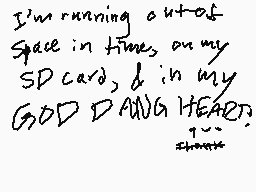 I'm running out of
space in times, on my
SD card, & in my
GOD DANG HEART.